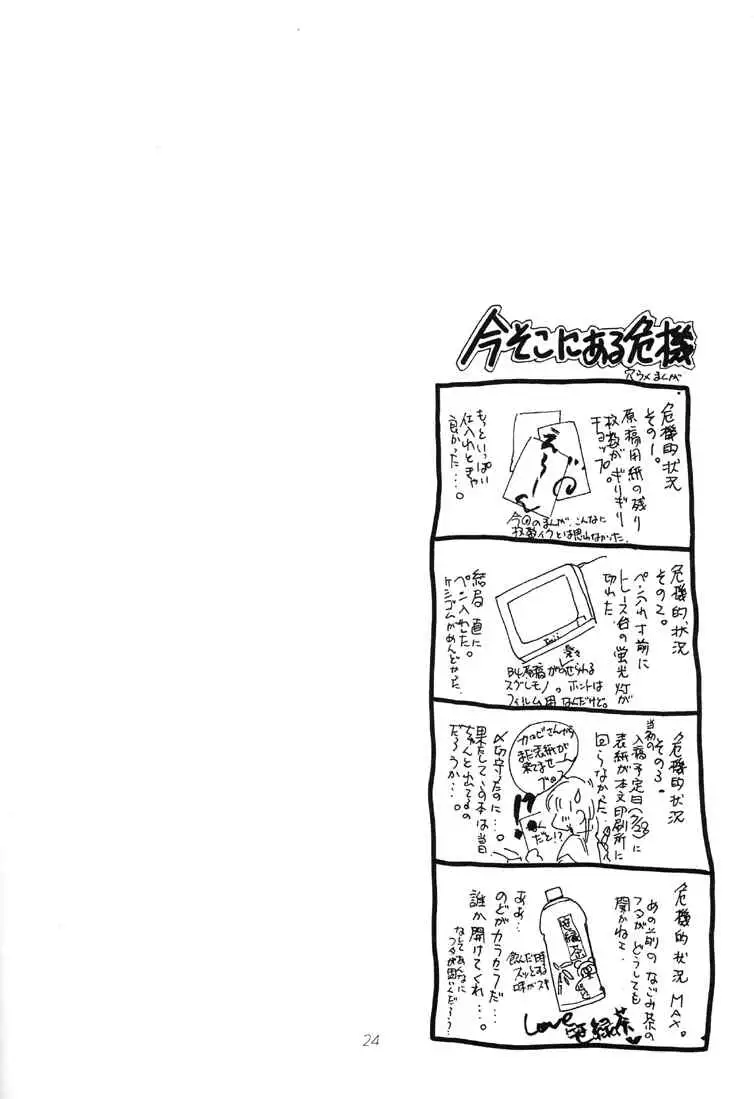 今そこにある危機
穴ウメまんが
危機的状況
その1。
原稿用紙の残り
枚数がギリギリ
チョップ。
えーの
もっといっぱい
仕入れときゃ
良かった…。
今回のまんが、こんなに
枚数イクとは思わなかった。
危機的状況
その2。
ペン入れ寸前に
トレース台の蛍光灯が
切れた
B4原稿がのせられる
スグレモノ。ホントは
フィルム用なんだけど。
結局直に
ペン入れした。
ケシゴムがめんどかった
危機的状況
その3。
当初の
入稿予定日(7/28)に
表紙が本文印刷所に
回らなかった。
まだ表紙が
来てません
!?
だと!?
〆切守ったのに…。
果たしてこの本は当日
ちゃんと出てるの
だろうか…。
危機的状況MAX。
あの前のなごみ茶の
フタがどうしても
開かねェ
笹緑茶
飲んだ時
スッとする
味がスキ
Love笹緑茶
ああ…
のどがカラカラだ…
誰か開けてくれ…。
なしてあんなに
フタが固いんだろう?
24